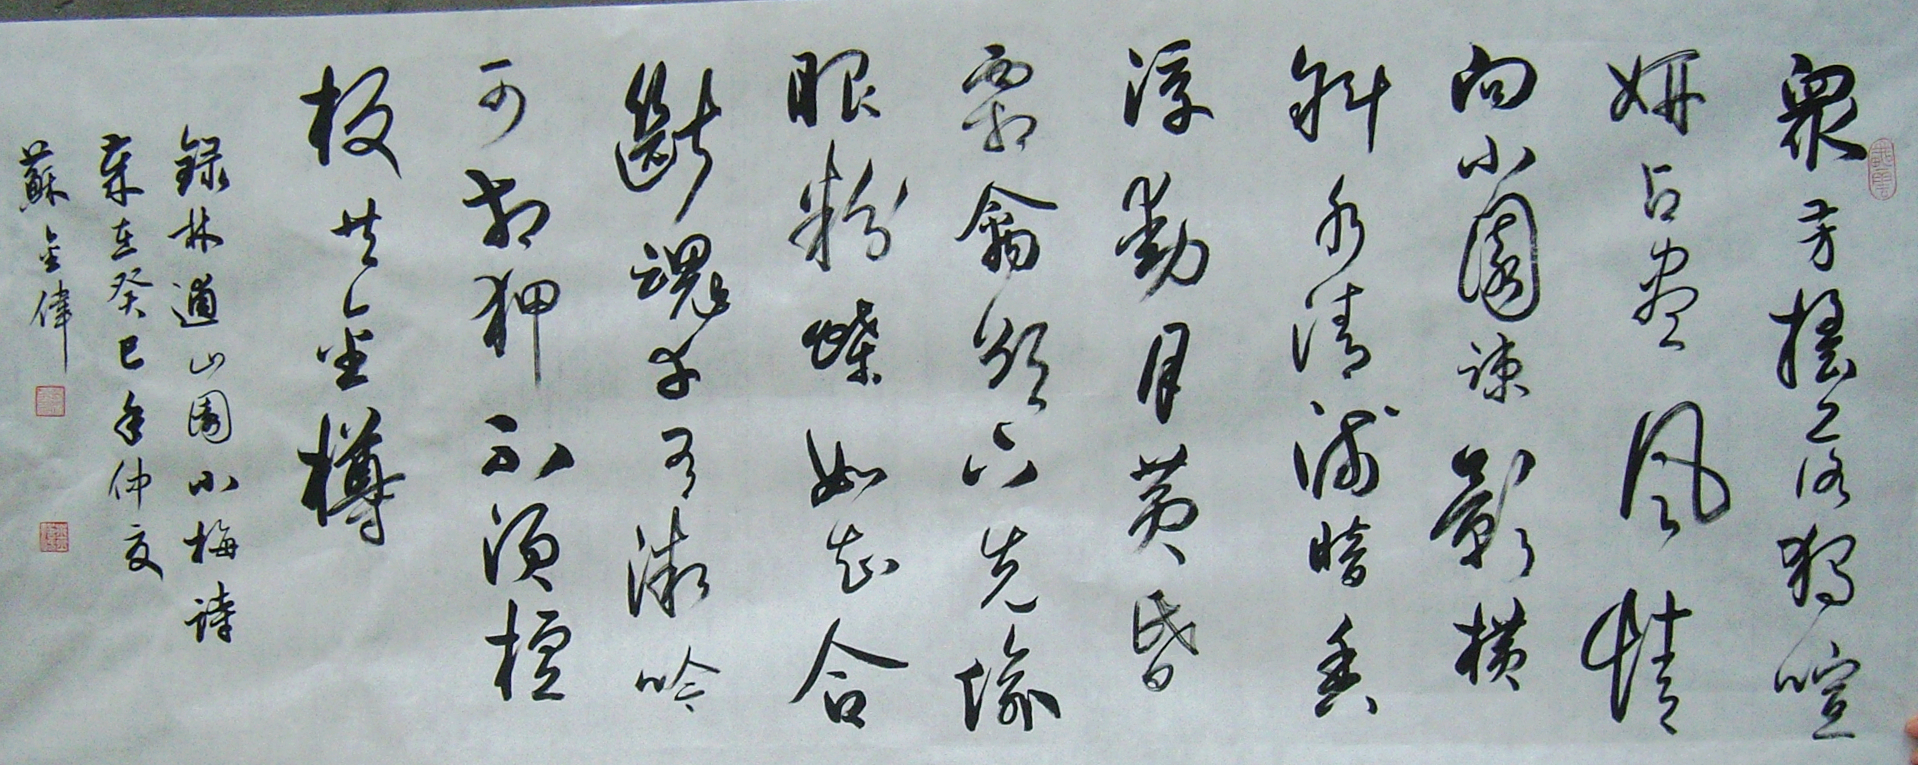 眾芳搖落獨喧
妍占尽风情
向小園疎影横
斜水清浅暗香
浮動月黄昏
霜禽欲下先偷
眼粉蝶如知合
斷魂幸有微吟
可相狎不須檀
板共金樽
録林逋山園小梅詩
歲在癸巳年仲夏
蘇金偉